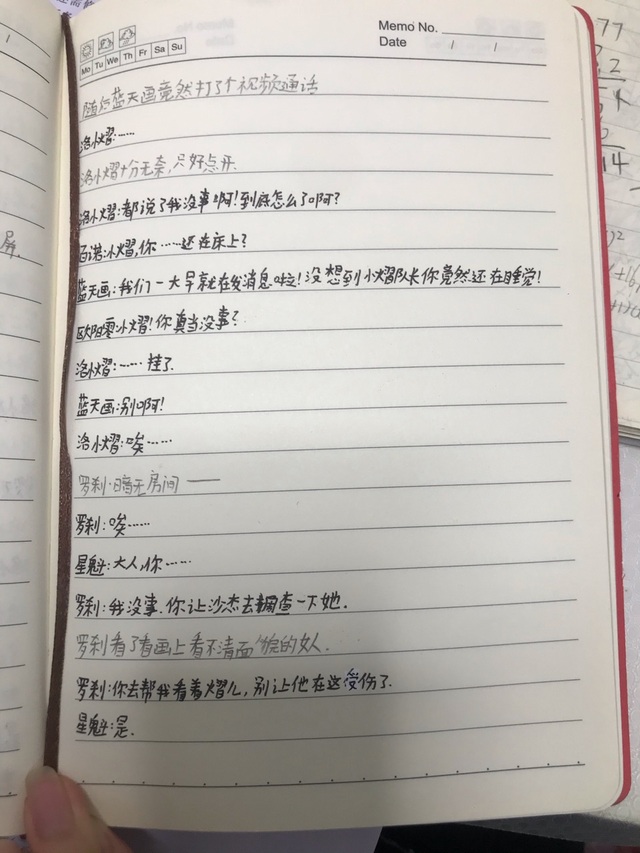 Memo No.
Date / /
Mo Tu We Th Fr Sa Su
随后蓝天画竟然打了个视频通话
洛小熠:……
洛小熠十分无奈,只好点开.
洛小熠:都说了我没事啊!到底怎么了啊?
百诺:小熠,你……还在床上?
蓝天画:我们一大早就在发消息啦!没想到小熠队长你竟然还在睡觉!
欧阳零:小熠!你真当没事?
洛小熠:……挂了.
蓝天画:别啊!
洛小熠:唉……
罗刹·暗无房间——
罗刹:唉……
星魁:大人,你……
罗刹:我没事.你让沙杰去调查一下她.
罗刹看了看画上看不清面貌的女人.
罗刹:你去帮我看着熠儿,别让他在这受伤了.
星魁:是.
屏.
77
2
14